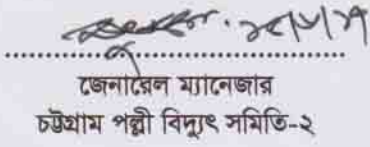 জেনারেল ম্যানেজার
চট্টগ্রাম পল্লী বিদ্যুৎ সমিতি-২